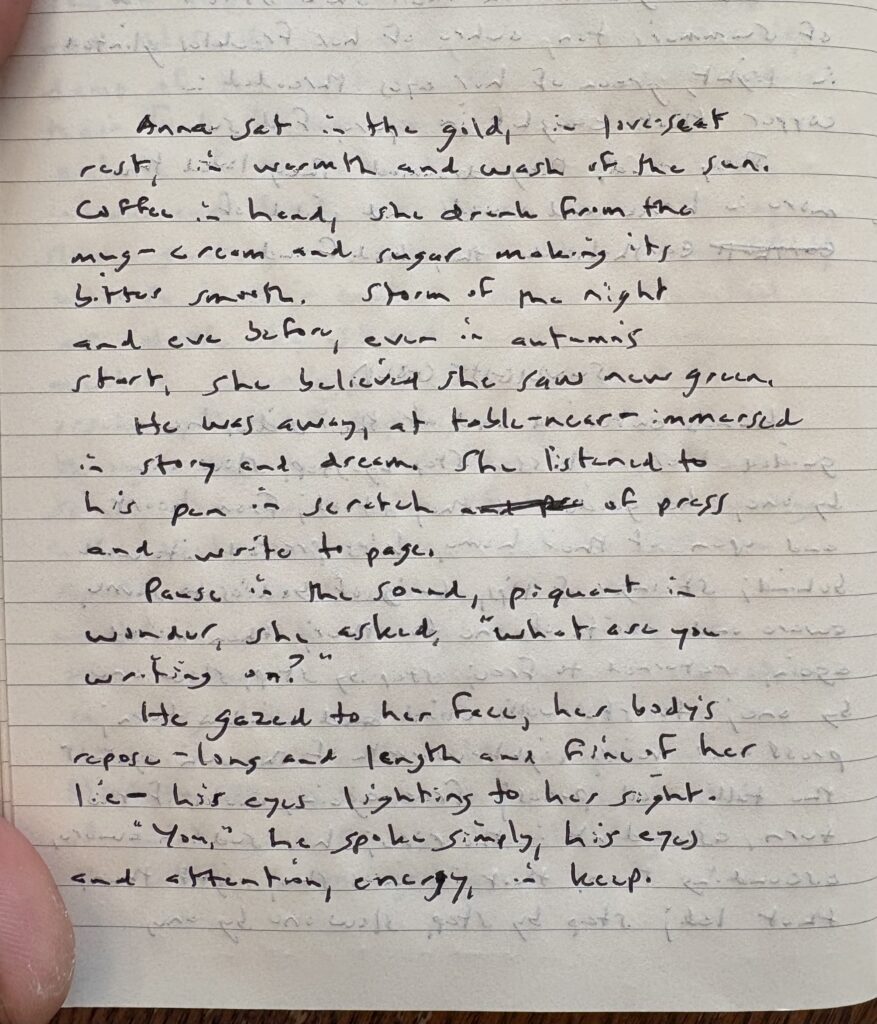 Anna sat in the gold, in love-seat
rest, in warmth and wash of the sun.
Coffee in hand, she drank from the
mug - cream and sugar making its
bitter smooth. Storm of the night
and eve before, even in autumn's
start, she believed she saw new green.
He was away, at table-near - immersed
in story and dream. She listened to
his pen in scratch of press
and write to page.
Pause in the sound, piquant in
wonder, she asked, "What are you
writing on?"
He gazed to her face, her body's
repose - long and length and fine of her
lie - his eyes lighting to her sight.
"You," he spoke simply, his eyes
and attention, energy, in keep.